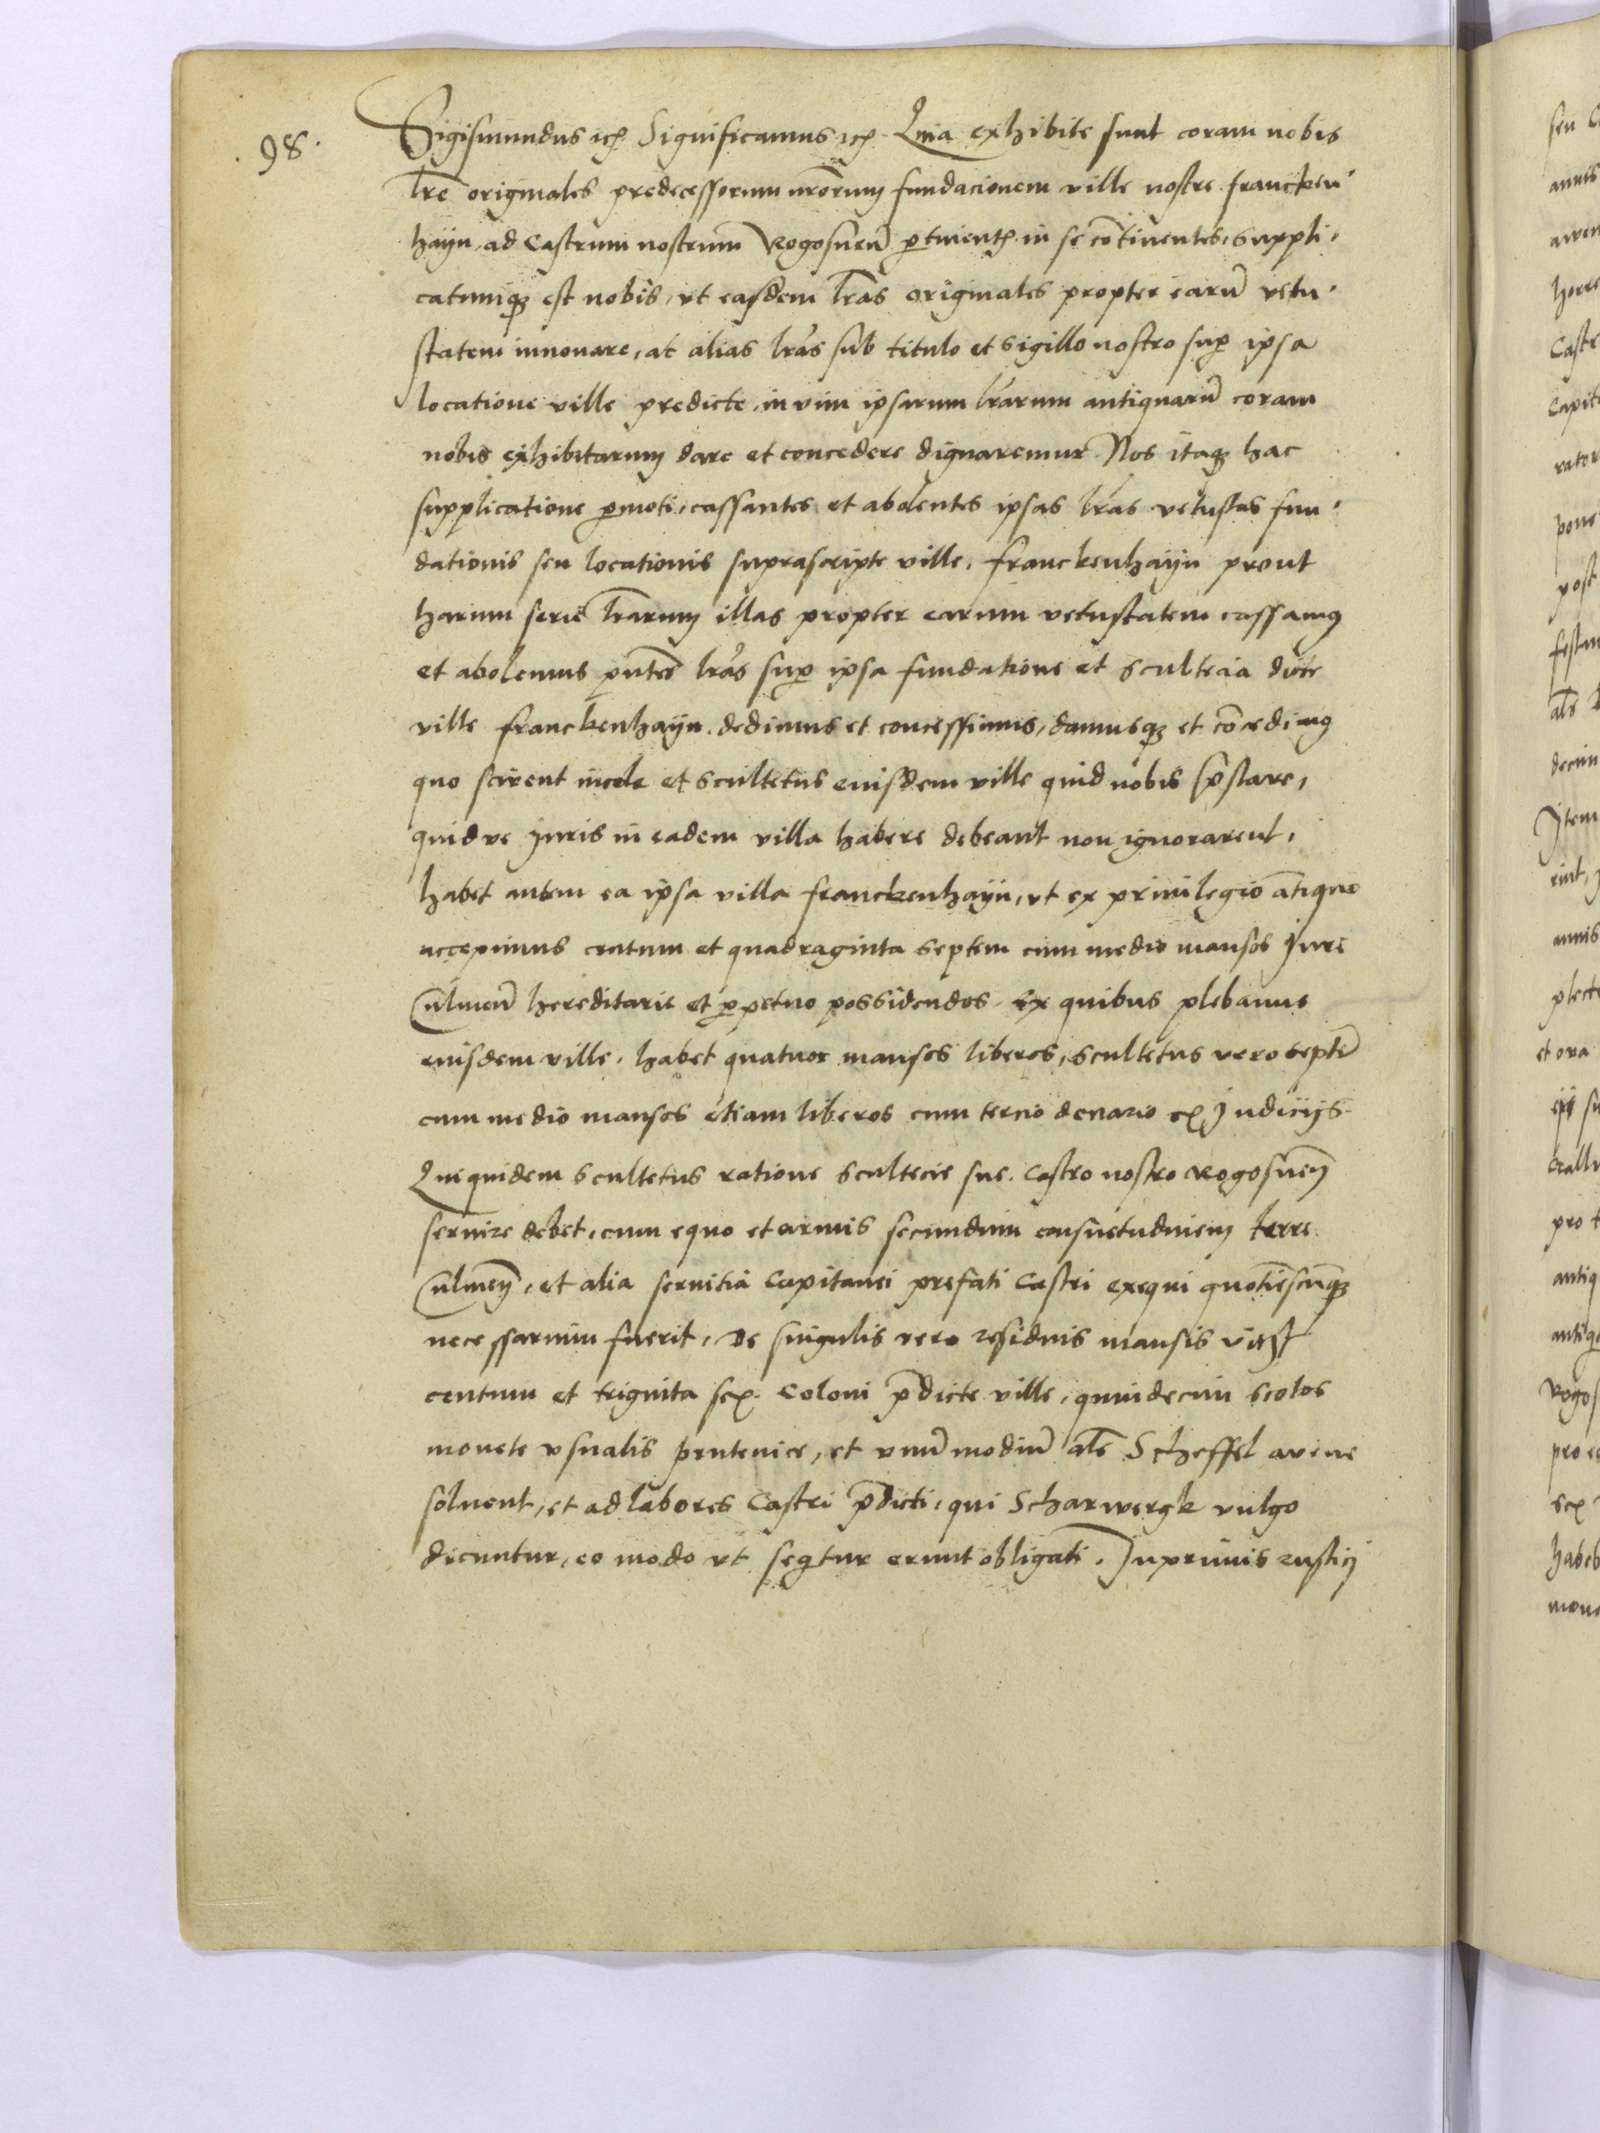 .98.
Sigismundus etc Significamus etc. Quia exhibite sunt coram nobis
lr̃e originales predecessorum nr̃orum fundacionem ville nostre francken
hayn ad Castrum nostrum Rogosneñ ptinentem in se cõtinentes, suppli,
catumq; est nobis, vt easdem lr̃as originales propter earũ vetu
statem innouare, ac alias lr̃as sub titulo et sigillo nostro sup ipsa
locatione ville predicte in vim ipsarum lr̃arum antiquarũ coram
nobis exhibitarum dare et concedere dignaremur Nos itaq; hac
supplicatione pmoti, cassantes et abolentes ipsas lr̃as vetustas fun
dationis seu locationis suprascripte ville, franckenhayn prout
harum serie lr̃arum illas propter earum vetustatem cassamus
et abolemus pñtes lr̃as sup ipsa fundatione et scultecia dicte
ville franckenhayn. dedimus et concessimus, damusq; et cõcedimus
quo scirent incole et scultetus eiusdem ville quid nobis p̃stare,
quidve Juris in eadem villa habere debeant non ignorarent,
habet autem ea ipsa villa franckenhayn, vt ex priuilegio ãtiquo
accepimus centum et quadraginta septem cum medio mansos Jure
Culmeñ hereditarie et ppetuo possidendos. Ex quibus plebanus
eiusdem ville. habet quatuor mansos liberos, scultetus vero septẽ
cum medio mansos etiam liberos cum tercio denario ex Judicijs.
Qui quidem scultetus ratione scultecie sue. Castro nostro Rogosneñ
seruire debet, cum equo et armis secundum consuetudinem terre
Culmeñ, et alia seruitia Capitanei prefati Castri exequi quotiescũq;
necessarium fuerit, De singulis vero residuis mansis vidz
centum et triginta sex. Coloni p̃dicte ville, quindecim scotos
monete vsualis prutenice, et vnũ modiũ als̃ Scheffel avene
soluent, et ad labores Castri p̃dicti, qui Scharwergk vulgo
dicuntur, eo modo vt seqtur erunt obligati. Inprimis rustici